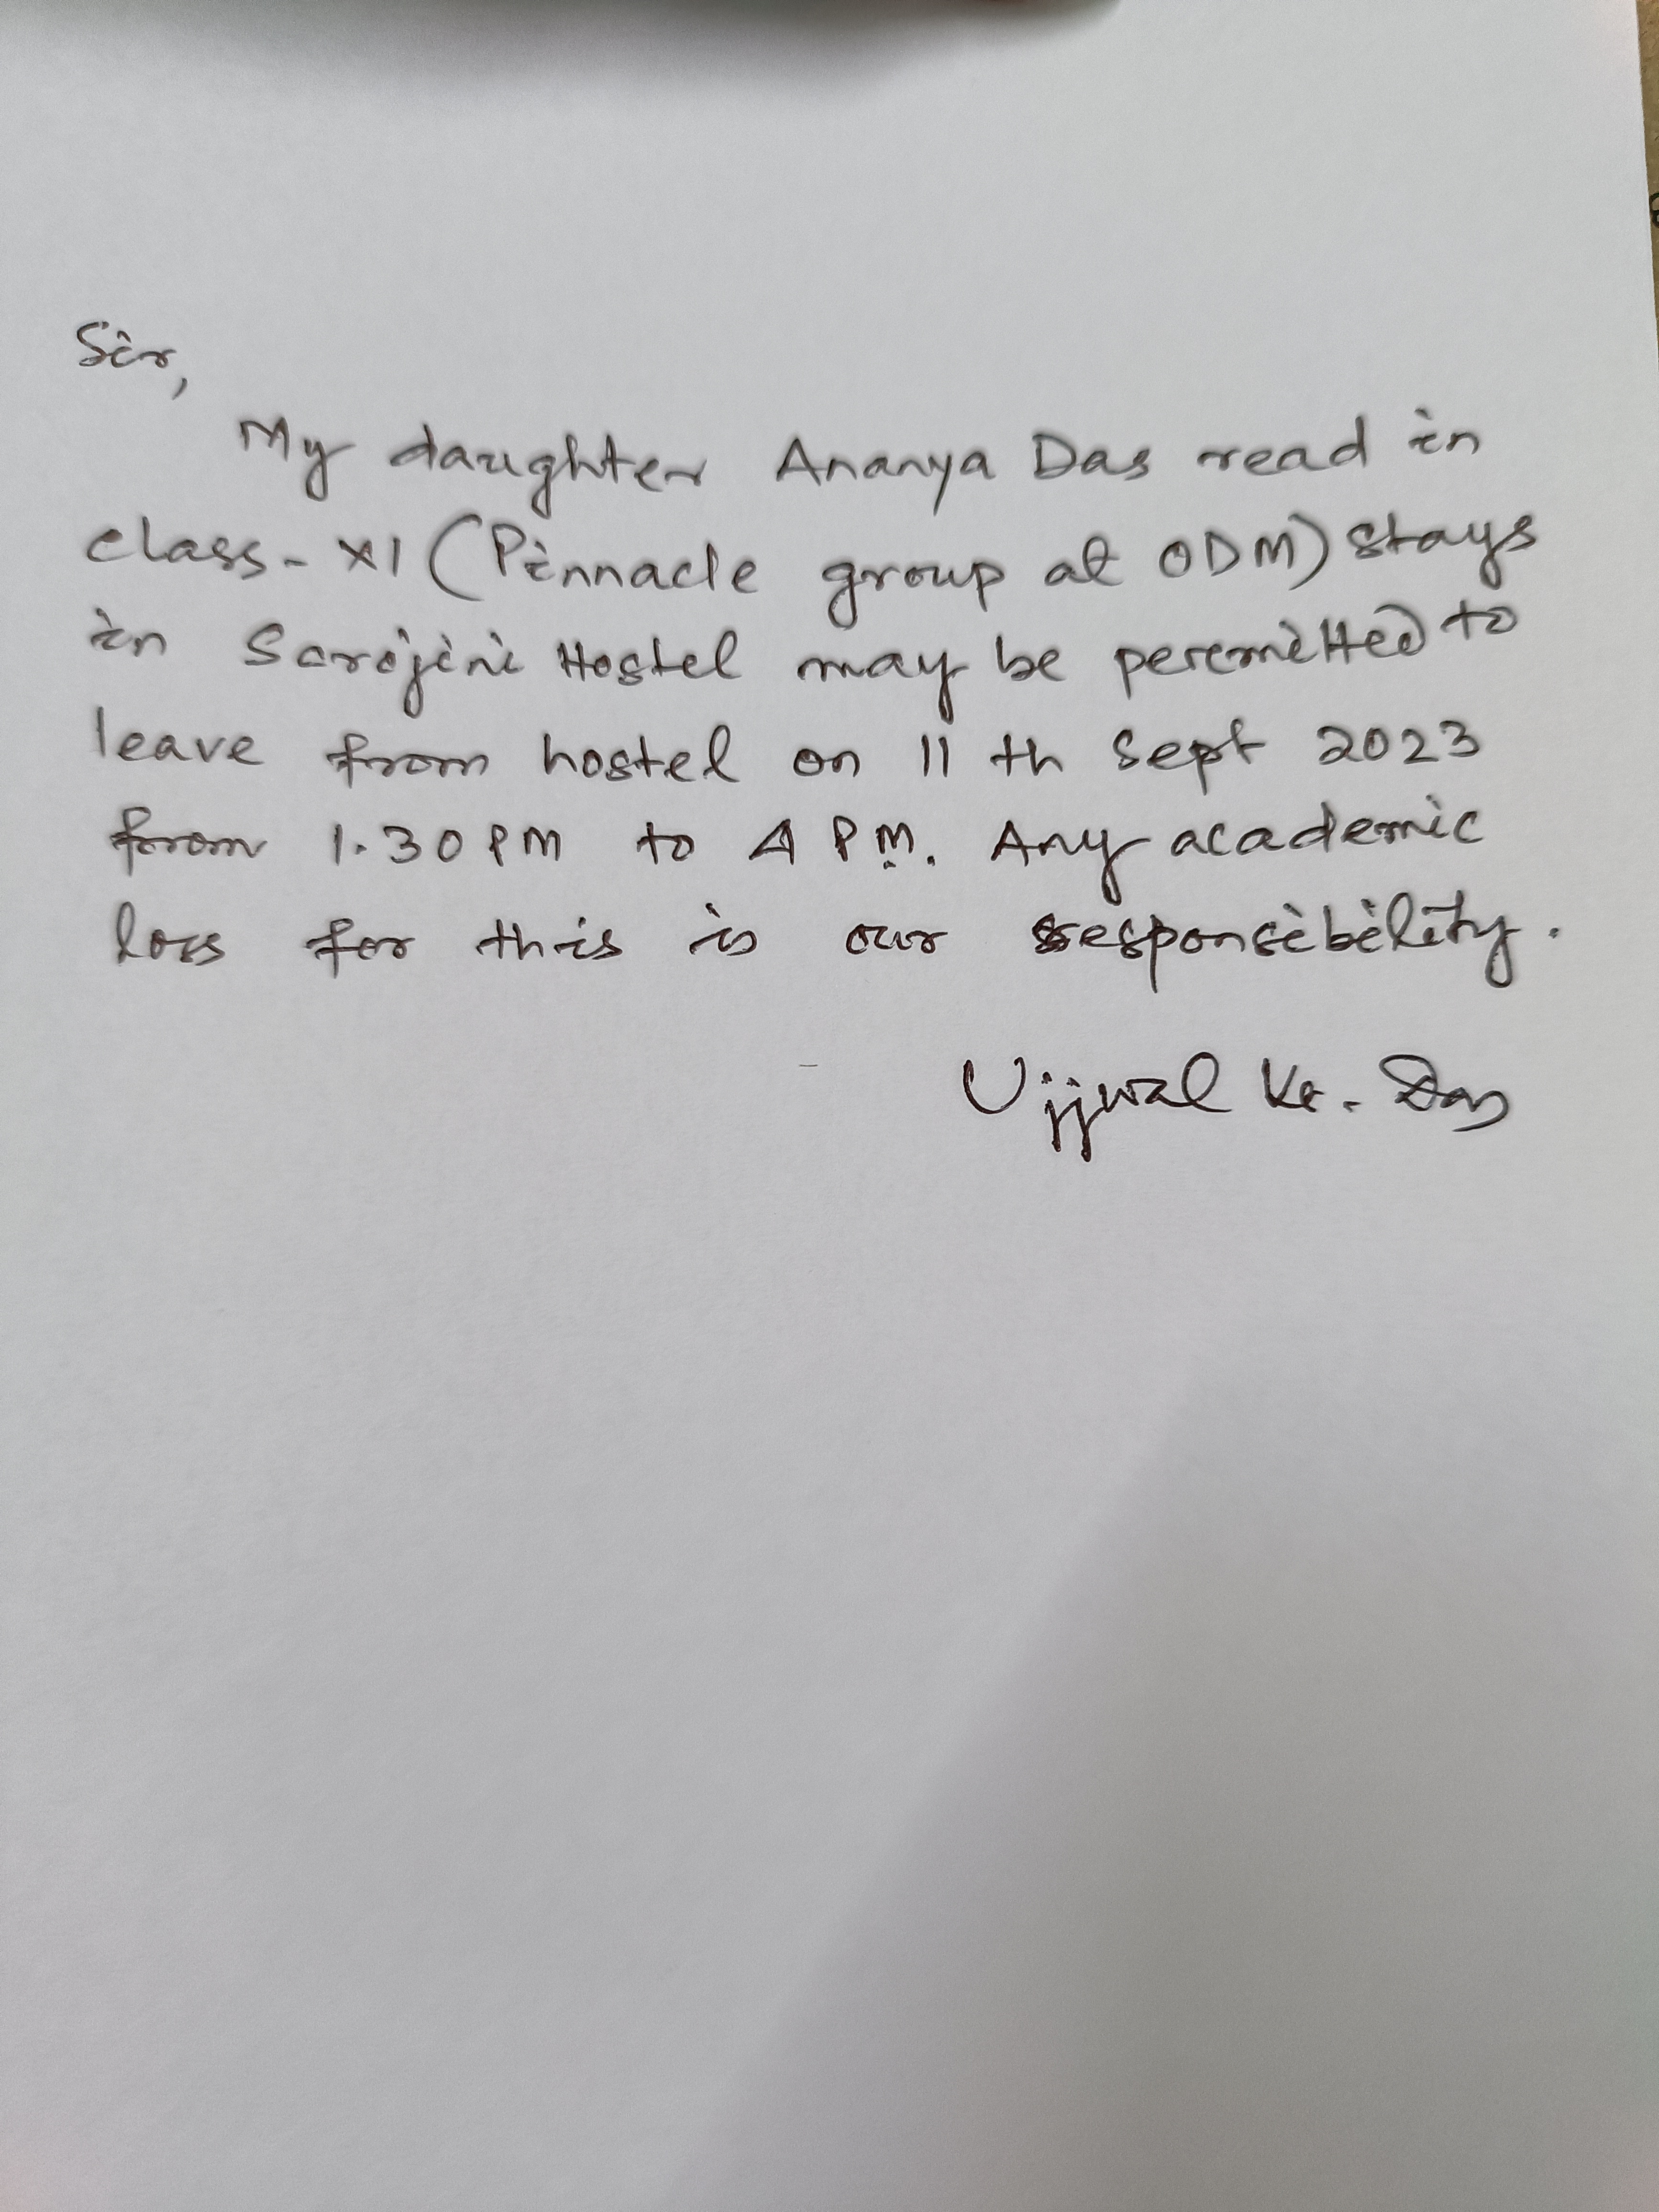 Sir,
My daughter Ananya Das read in
class - XI (Pinnacle group at ODM) stays
in Sarojini Hostel may be permitted to
leave from hostel on 11 th Sept 2023
from 1.30 PM to 4 PM. Any academic
loss for this is our responsibility.
Ujjwal Kr. Das